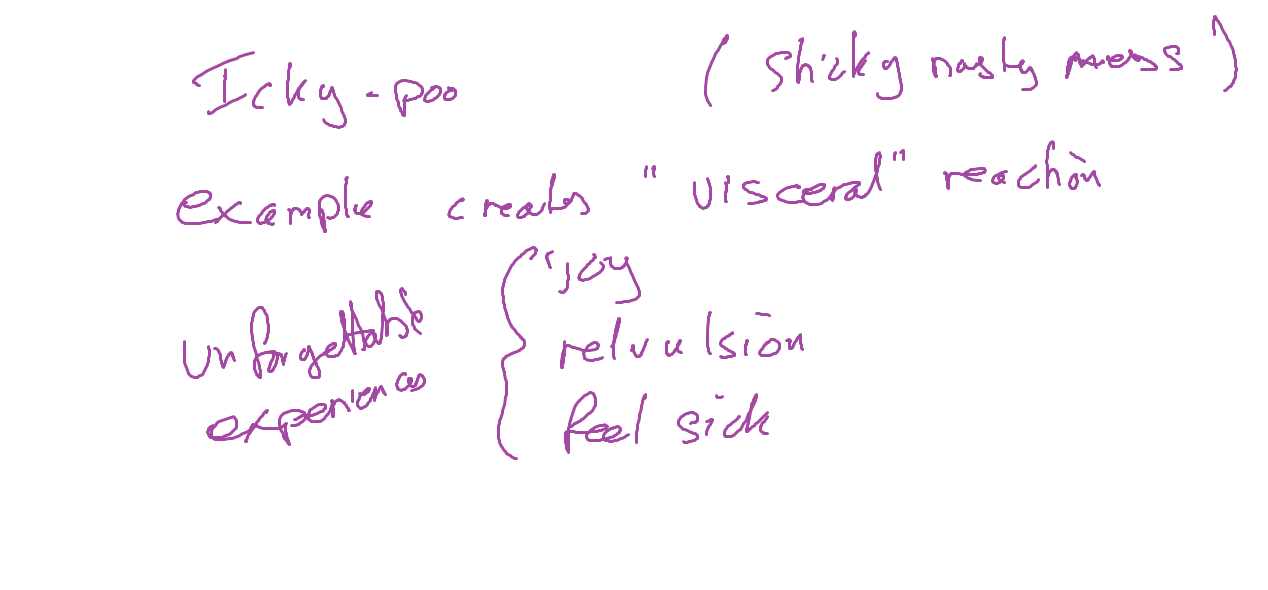 Icky-poo (sticky nasty mess)
example creates "visceral" reaction
unforgettable experiences
"joy
relvulsion
feel sick